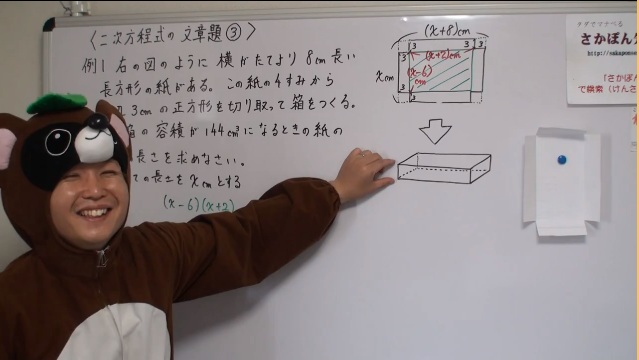 〈二次方程式の文章題③〉
例1 右の図のように横がたてより8cm長い
長方形の紙がある。この紙の4すみから
3cmの正方形を切り取って箱をつくる。
箱の容積が144cm³になるときの紙の
長さを求めなさい。
ての長さをxcmとする
(x-6)(x+2)
(x+8)cm
3
3
3
3
(x+2)cm
xcm
3
(x-6)
cm
3
タダでマナベる
さかぽん
http://sakapon
「さかぽ
で検索(けんさ